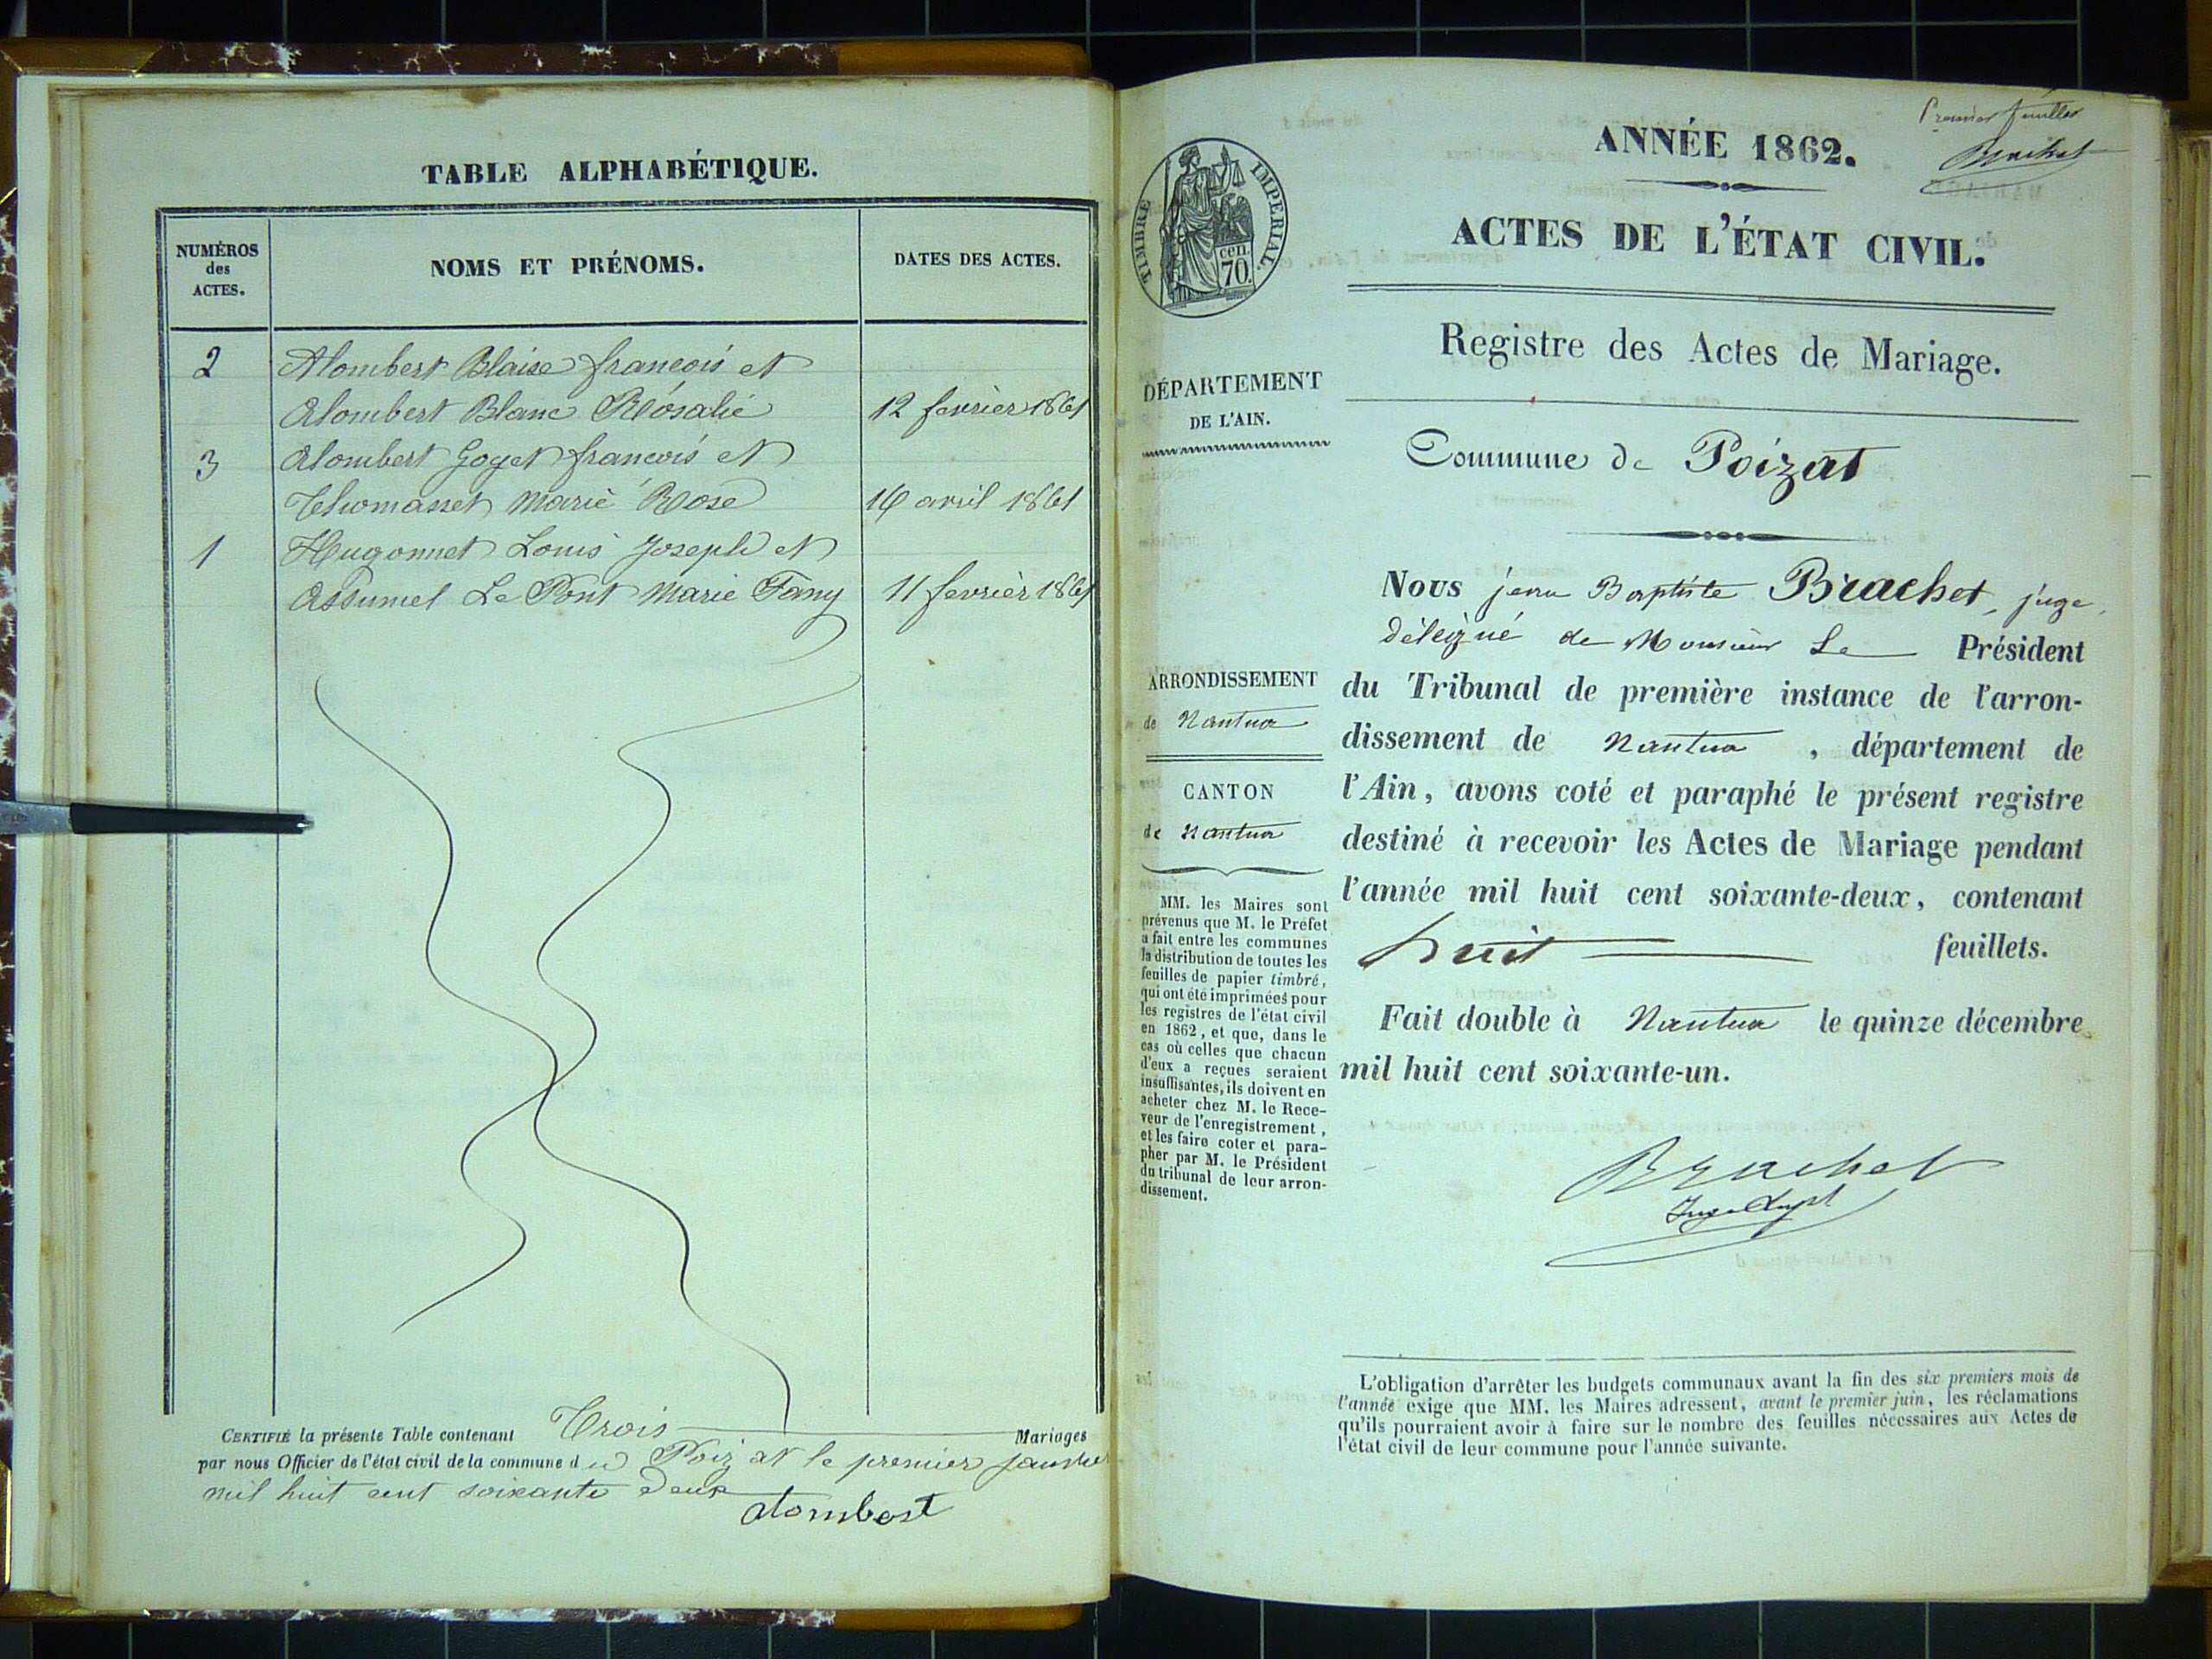 TABLE ALPHABÉTIQUE.
NUMÉROS
des
ACTES.
NOMS ET PRÉNOMS.
DATES DES ACTES.
2 Alombert Blaise françois et
Alombert Blanc Rosalie 12 fevrier 1861
3 Alombert Goyet françois et
Thomasset Marie Rose 16 avril 1861
1 Hugonnet Louis Joseph et
Assumel Le Pont Marie Fany 11 fevrier 1861
CERTIFIÉ la présente Table contenant Trois Mariages
par nous Officier de l'état civil de la commune du Poizat le premier janvier
mil huit cent soixante deux
Alombert
Premier feuillet
Brachet
ANNÉE 1862.
TIMBRE IMPERIAL.
cen.
70.
ACTES DE L'ÉTAT CIVIL.
Registre des Actes de Mariage.
DÉPARTEMENT
DE L'AIN.
Commune de Poizat
ARRONDISSEMENT
de Nantua
CANTON
de Nantua
MM. les Maires sont
prévenus que M. le Préfet
a fait entre les communes
la distribution de toutes les
feuilles de papier timbré,
qui ont été imprimées pour
les registres de l'état civil
en 1862, et que, dans le
cas où celles que chacun
d'eux a reçues seraient
insuffisantes, ils doivent en
acheter chez M. le Rece-
veur de l'enregistrement,
et les faire coter et para-
pher par M. le Président
du tribunal de leur arron-
dissement.
Nous jean Baptiste Brachet, juge,
délégué de Monsieur Le Président
du Tribunal de première instance de l'arron-
dissement de Nantua, département de
l'Ain, avons coté et paraphé le présent registre
destiné à recevoir les Actes de Mariage pendant
l'année mil huit cent soixante-deux, contenant
huit feuillets.
Fait double à Nantua le quinze décembre
mil huit cent soixante-un.
Brachet
L'obligation d'arrêter les budgets communaux avant la fin des six premiers mois de
l'année exige que MM. les Maires adressent, avant le premier juin, les réclamations
qu'ils pourraient avoir à faire sur le nombre des feuilles nécessaires aux Actes de
l'état civil de leur commune pour l'année suivante.